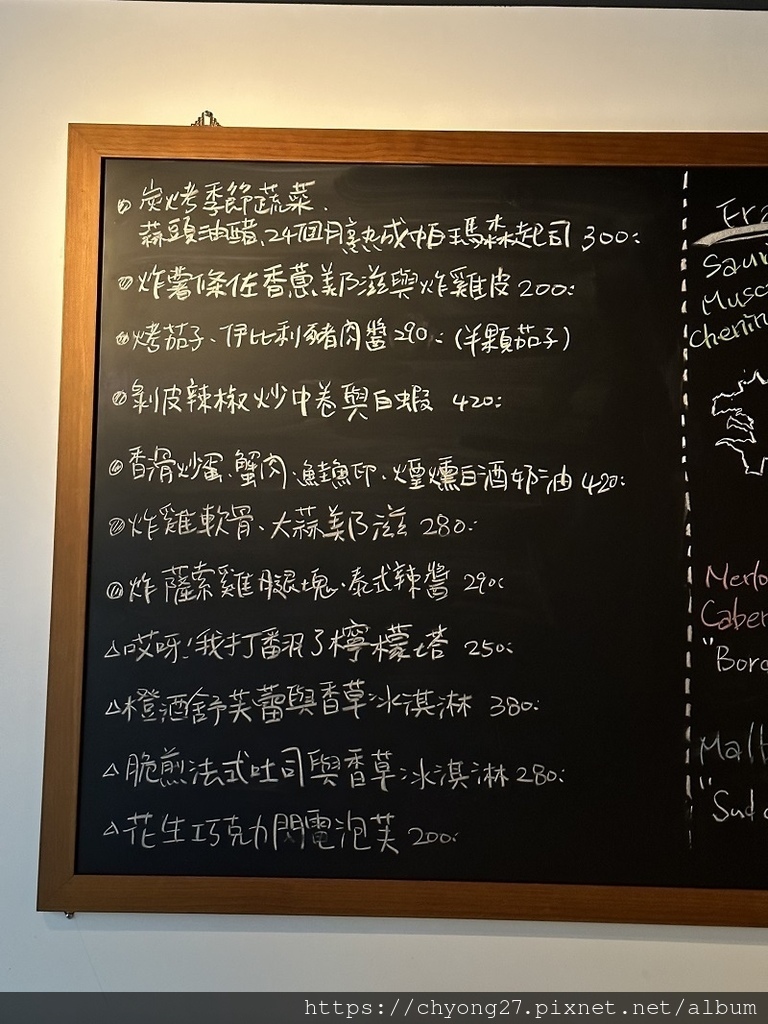 炭烤季節蔬菜、
蒜頭油醋、24個月熟成帕瑪森起司 300:
炸薯條佐香蔥美乃滋與炸雞皮 200:
烤茄子、伊比利豬肉醬 290: (半顆茄子)
剝皮辣椒炒中卷與白蝦 420:
香滑炒蛋、蟹肉、鮭魚卵、煙燻白酒奶油 420:
炸雞軟骨、大蒜美乃滋 280:
炸薩索雞腿塊、泰式辣醬 290:
△哎呀!我打翻了檸檬塔 250:
△橙酒舒芙蕾與香草冰淇淋 380:
△脆煎法式吐司與香草冰淇淋 280:
△花生巧克力閃電泡芙 200:
Fra
Sauv
Musc
Chenin
Merlo
Caber
"Bord
Malb
"Sud
https://chyong27.pixnet.net/album